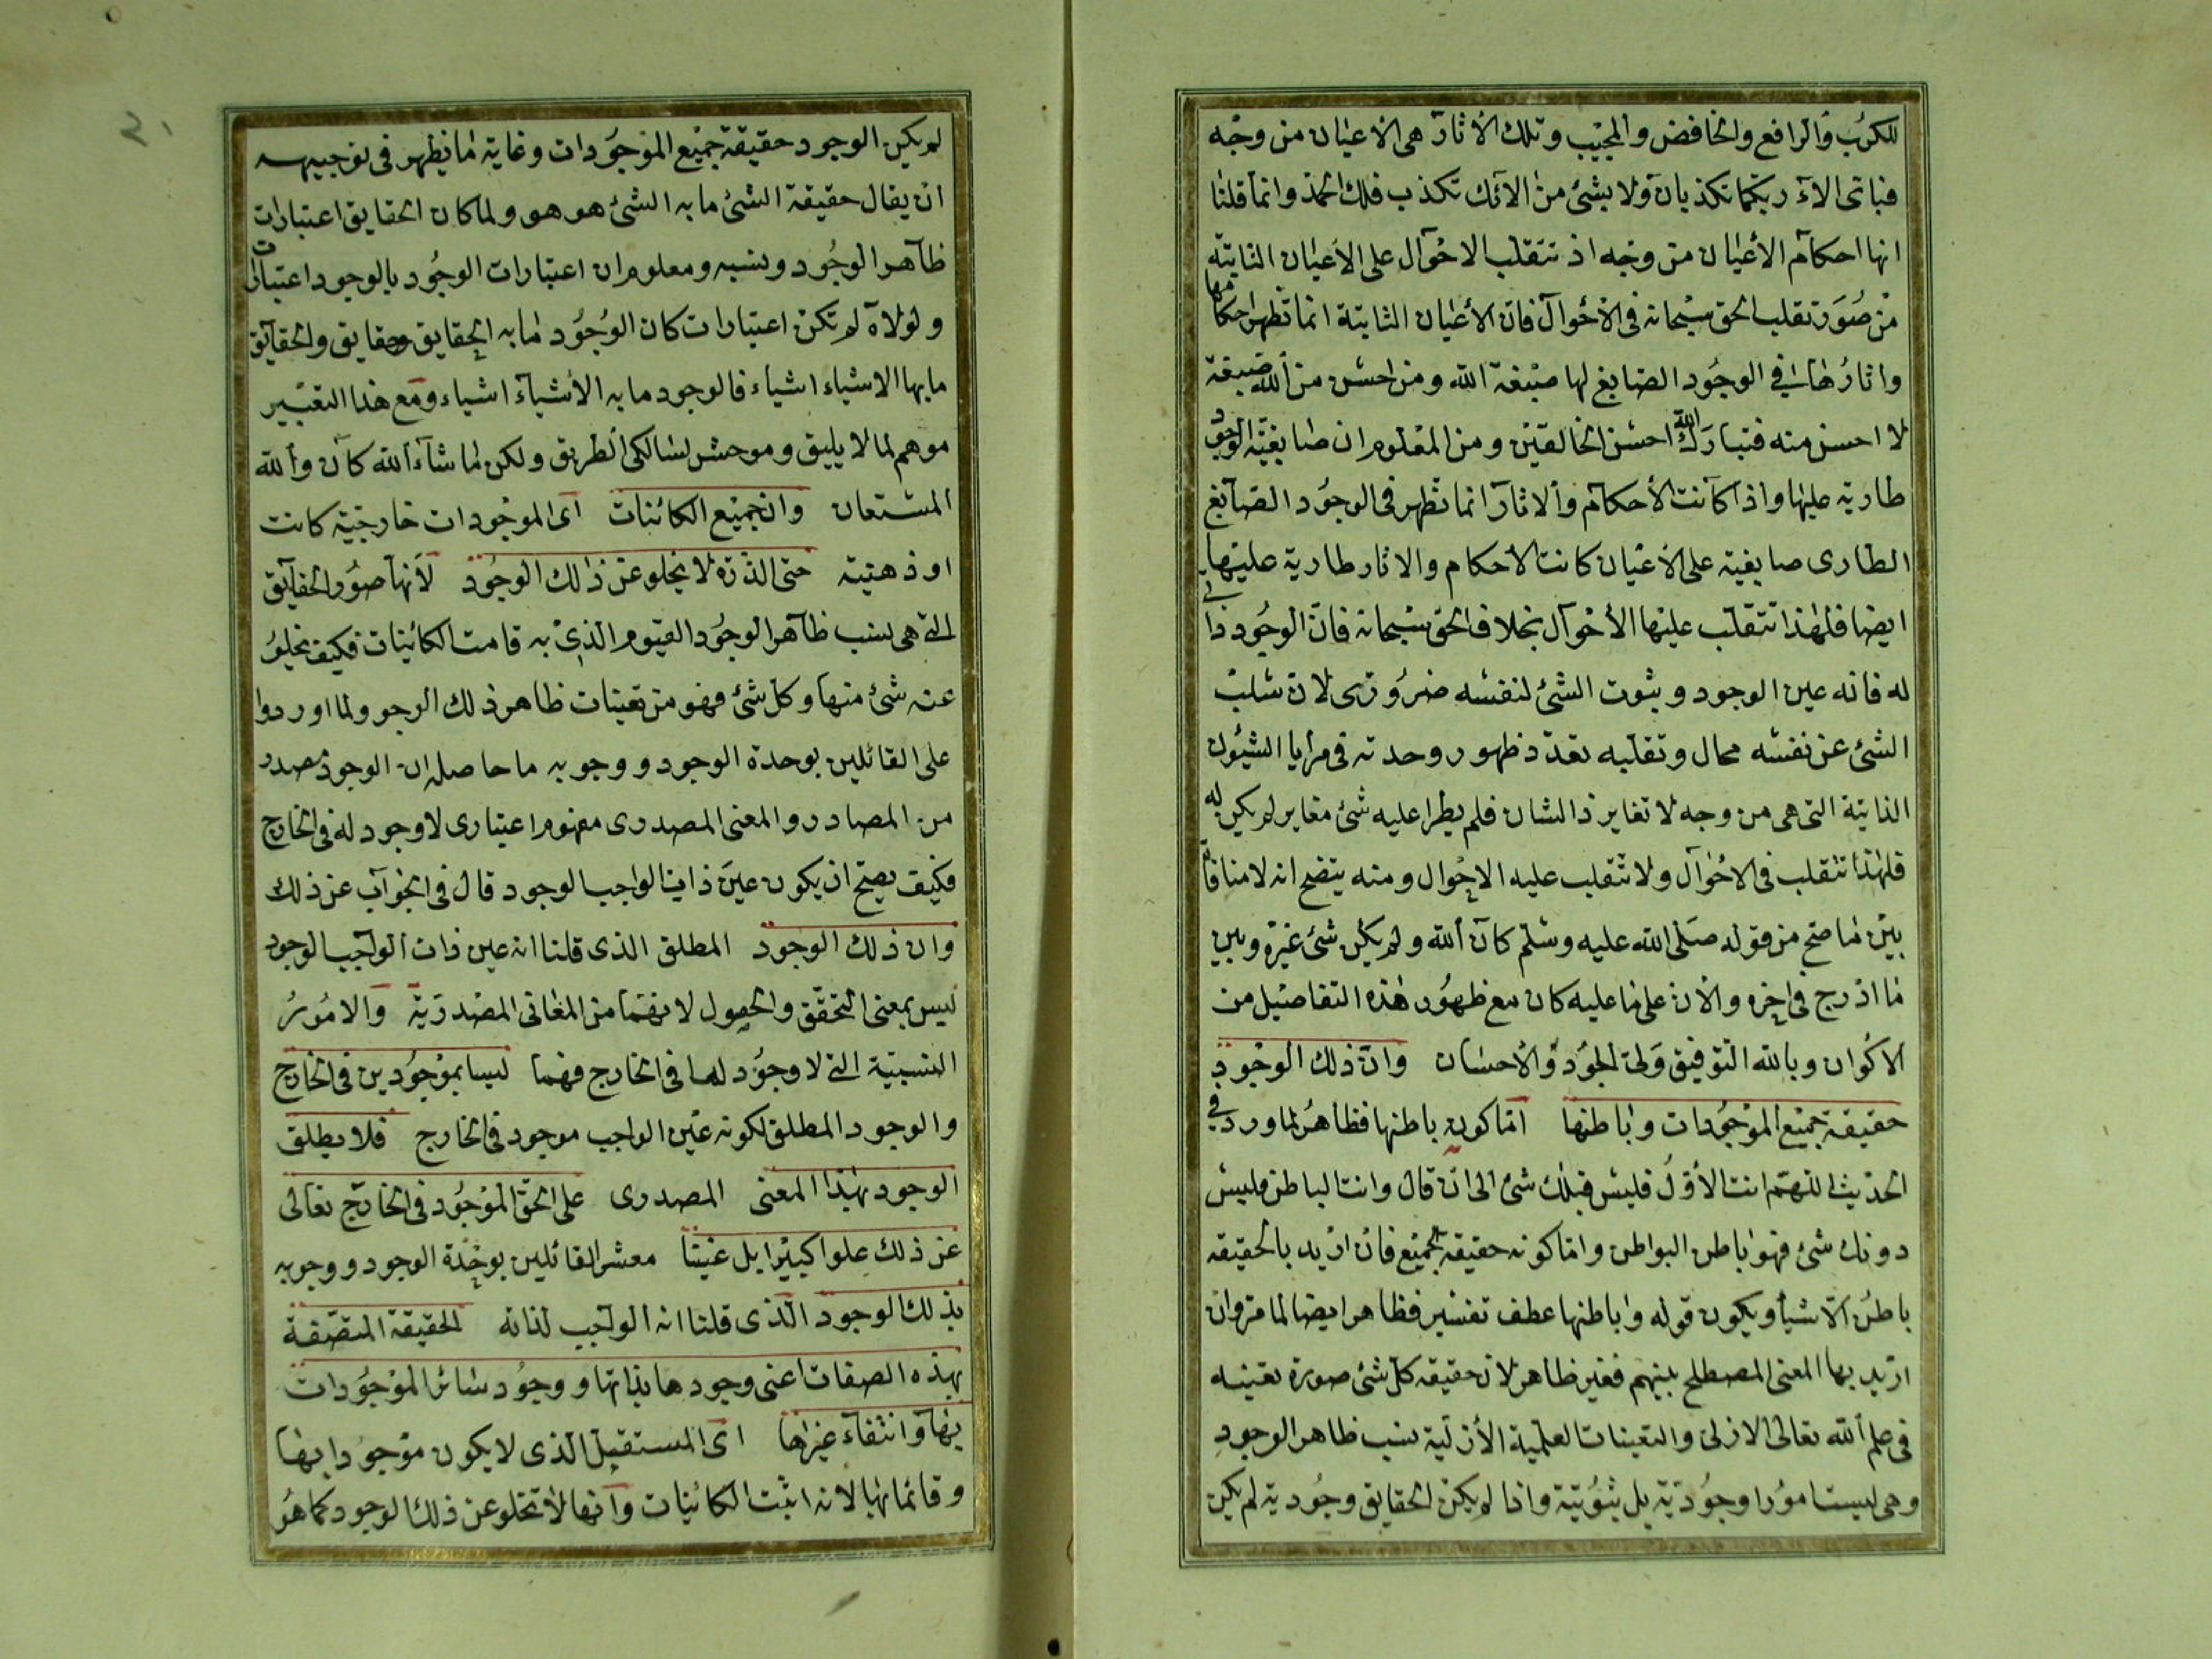 للكرب والرافع والخافض والمجيب وتلك الاثار هى الاعيان من وجه
فباى الاء ربكما تكذبان ولا بشئ من الائك نكذب فلك الحمد وانما قلنا
انها احكام الأعيان من وجه اذ تتقلب الاحوال على الاعيان الثابتة
من صور تقلب الحق سبحانه فى الأحوال فان الأعيان الثابتة انما تظهر احكامها
واثارها فى الوجود الصابغ لها صبغة الله ومن احسن من الله صبغة
لا احسن منه فتبارك الله احسن الخالقين ومن المعلوم ان صابغية الوجود
طارية عليها واذا كانت الأحكام والاثار انما تظهر فى الوجود الصابغ
الطارى صابغيته على الأعيان كانت الاحكام والاثار طارية عليها
ايضا فلهذا تتقلب عليها الأحوال بخلاف الحق سبحانه فان الوجود ذاتى
له فانه عين الوجود وثبوت الشئ لنفسه ضرورى لان سلب
الشئ عن نفسه محال وتقلبه تعدد ظهور وحدته فى مرايا الشيون
الذاتية التى هى من وجه لا تغاير ذا الشان فلم يطرا عليه شئ مغاير لم يكن له
فلهذا تتقلب فى الاحوال ولا تتقلب عليه الاحوال ومنه يتضح انه لا منافاة
بين ما صح من قوله صلى الله عليه وسلم كان الله ولم يكن شئ غيره وبين
ما ادرج فى اخره والان على ما عليه كان مع ظهور هذه التفاصيل من
الاكوان وبالله التوفيق ولى الجود والاحسان وان ذلك الوجود
حقيقة جميع الموجودات وباطنها اما كون باطنها فظاهر لما ورد فى
الحديث اللهم انت الأول فليس قبلك شئ الى ان قال وانت الباطن فليس
دونك شئ فهو باطن البواطن واما كونه حقيقة الجميع فان اريد بالحقيقة
باطن الاشيأ ويكون قوله وباطنها عطف تفسير فظاهر ايضا لما مر وان
اريد بها المعنى المصطلح بينهم فغير ظاهر لان حقيقة كل شئ صورة تعينه
فى علم الله تعالى الازلى والتعينات العلمية الأزلية نسب ظاهر الوجود
وهى ليست امورا وجودية بل ثبوتية واذا لم يكن الحقايق وجودية لم يكن
٢١
لم يكن الوجود حقيقة جميع الموجودات وغاية ما يظهر فى توجيهه
ان يقال حقيقة الشئ ما به الشئ هو هو ولما كان الحقايق اعتبارات
ظاهر الوجود ونسبه ومعلوم ان اعتبارات الوجود بالوجود اعتبارات
ولولاه لم تكن اعتبارات كان الوجود ما به الحقايق حقايق والحقايق
ما بها الاشياء اشياء فالوجود ما به الأشياء اشياء ومع هذا التعبير
موهم لما لا يليق وموحش لسالكى الطريق ولكن ما شاء الله كان والله
المستعان وان جميع الكائنات اى الموجودات خارجية كانت
او ذهنية حتى الذرة لا يخلو عن ذلك الوجود لأنها صور الحقايق
التى هى نسب ظاهر الوجود القيوم الذى به قامت الكائنات فكيف يخلو
عنه شئ منها وكل شئ فهو من تعينات ظاهر ذلك الوجو ولما اوردوا
على القائلين بوحدة الوجود ووجوبه ما حاصله ان الوجود مصدر
من المصادر والمعنى المصدرى مفهوم اعتبارى لا وجود له فى الخارج
فكيف يصح ان يكون عين ذات الواجب الوجود قال فى الجواب عن ذلك
وان ذلك الوجود المطلق الذى قلنا انه عين ذات الواجب الوجود
ليس بمعنى التحقق والحصول لانهما من المعانى المصدرية والامور
النسبية التى لا وجود لها فى الخارج فهما ليسا بموجودين فى الخارج
والوجود المطلق لكونه عين الواجب موجود فى الخارج فلا يطلق
الوجود بهذا المعنى المصدرى على الحق الموجود فى الخارج تعالى
عن ذلك علوا كبيرا بل عنينا معشر القائلين بوحدة الوجود ووجوبه
بذلك الوجود الذى قلنا انه الواجب لذاته الحقيقة المتصفة
بهذه الصفات اعنى وجودها بذاتها ووجود سائر الموجودات
بها وانتفاء غيرها اى المستقبل الذى لا يكون موجودا بها
وقائما بها لانه اثبت الكائنات وانها لا تخلو عن ذلك الوجود كما هو